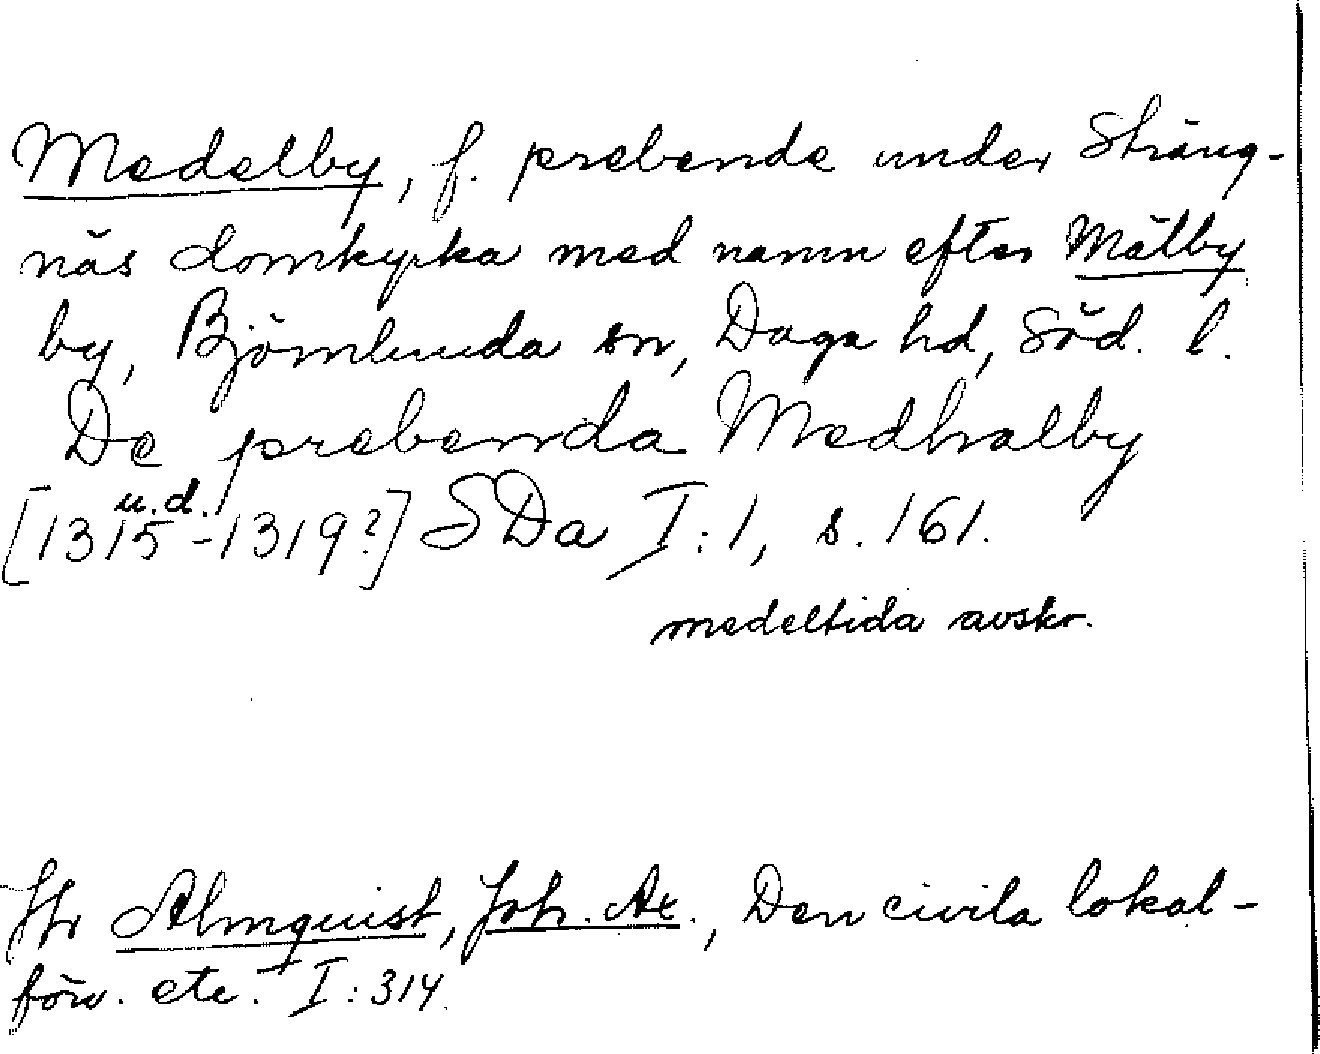 Medelby, f. prebende under Sträng-
näs domkyrka med namn efter Mälby
by, Björnlunda sn, Daga hd, Söd. l.
De prebenda Medhalby
u.d.
[1315-1319?] SDa I:1, s. 161.
medeltida avskr.
Jfr Almquist, Joh. Ax., Den civila lokal-
förv. etc. I:314.